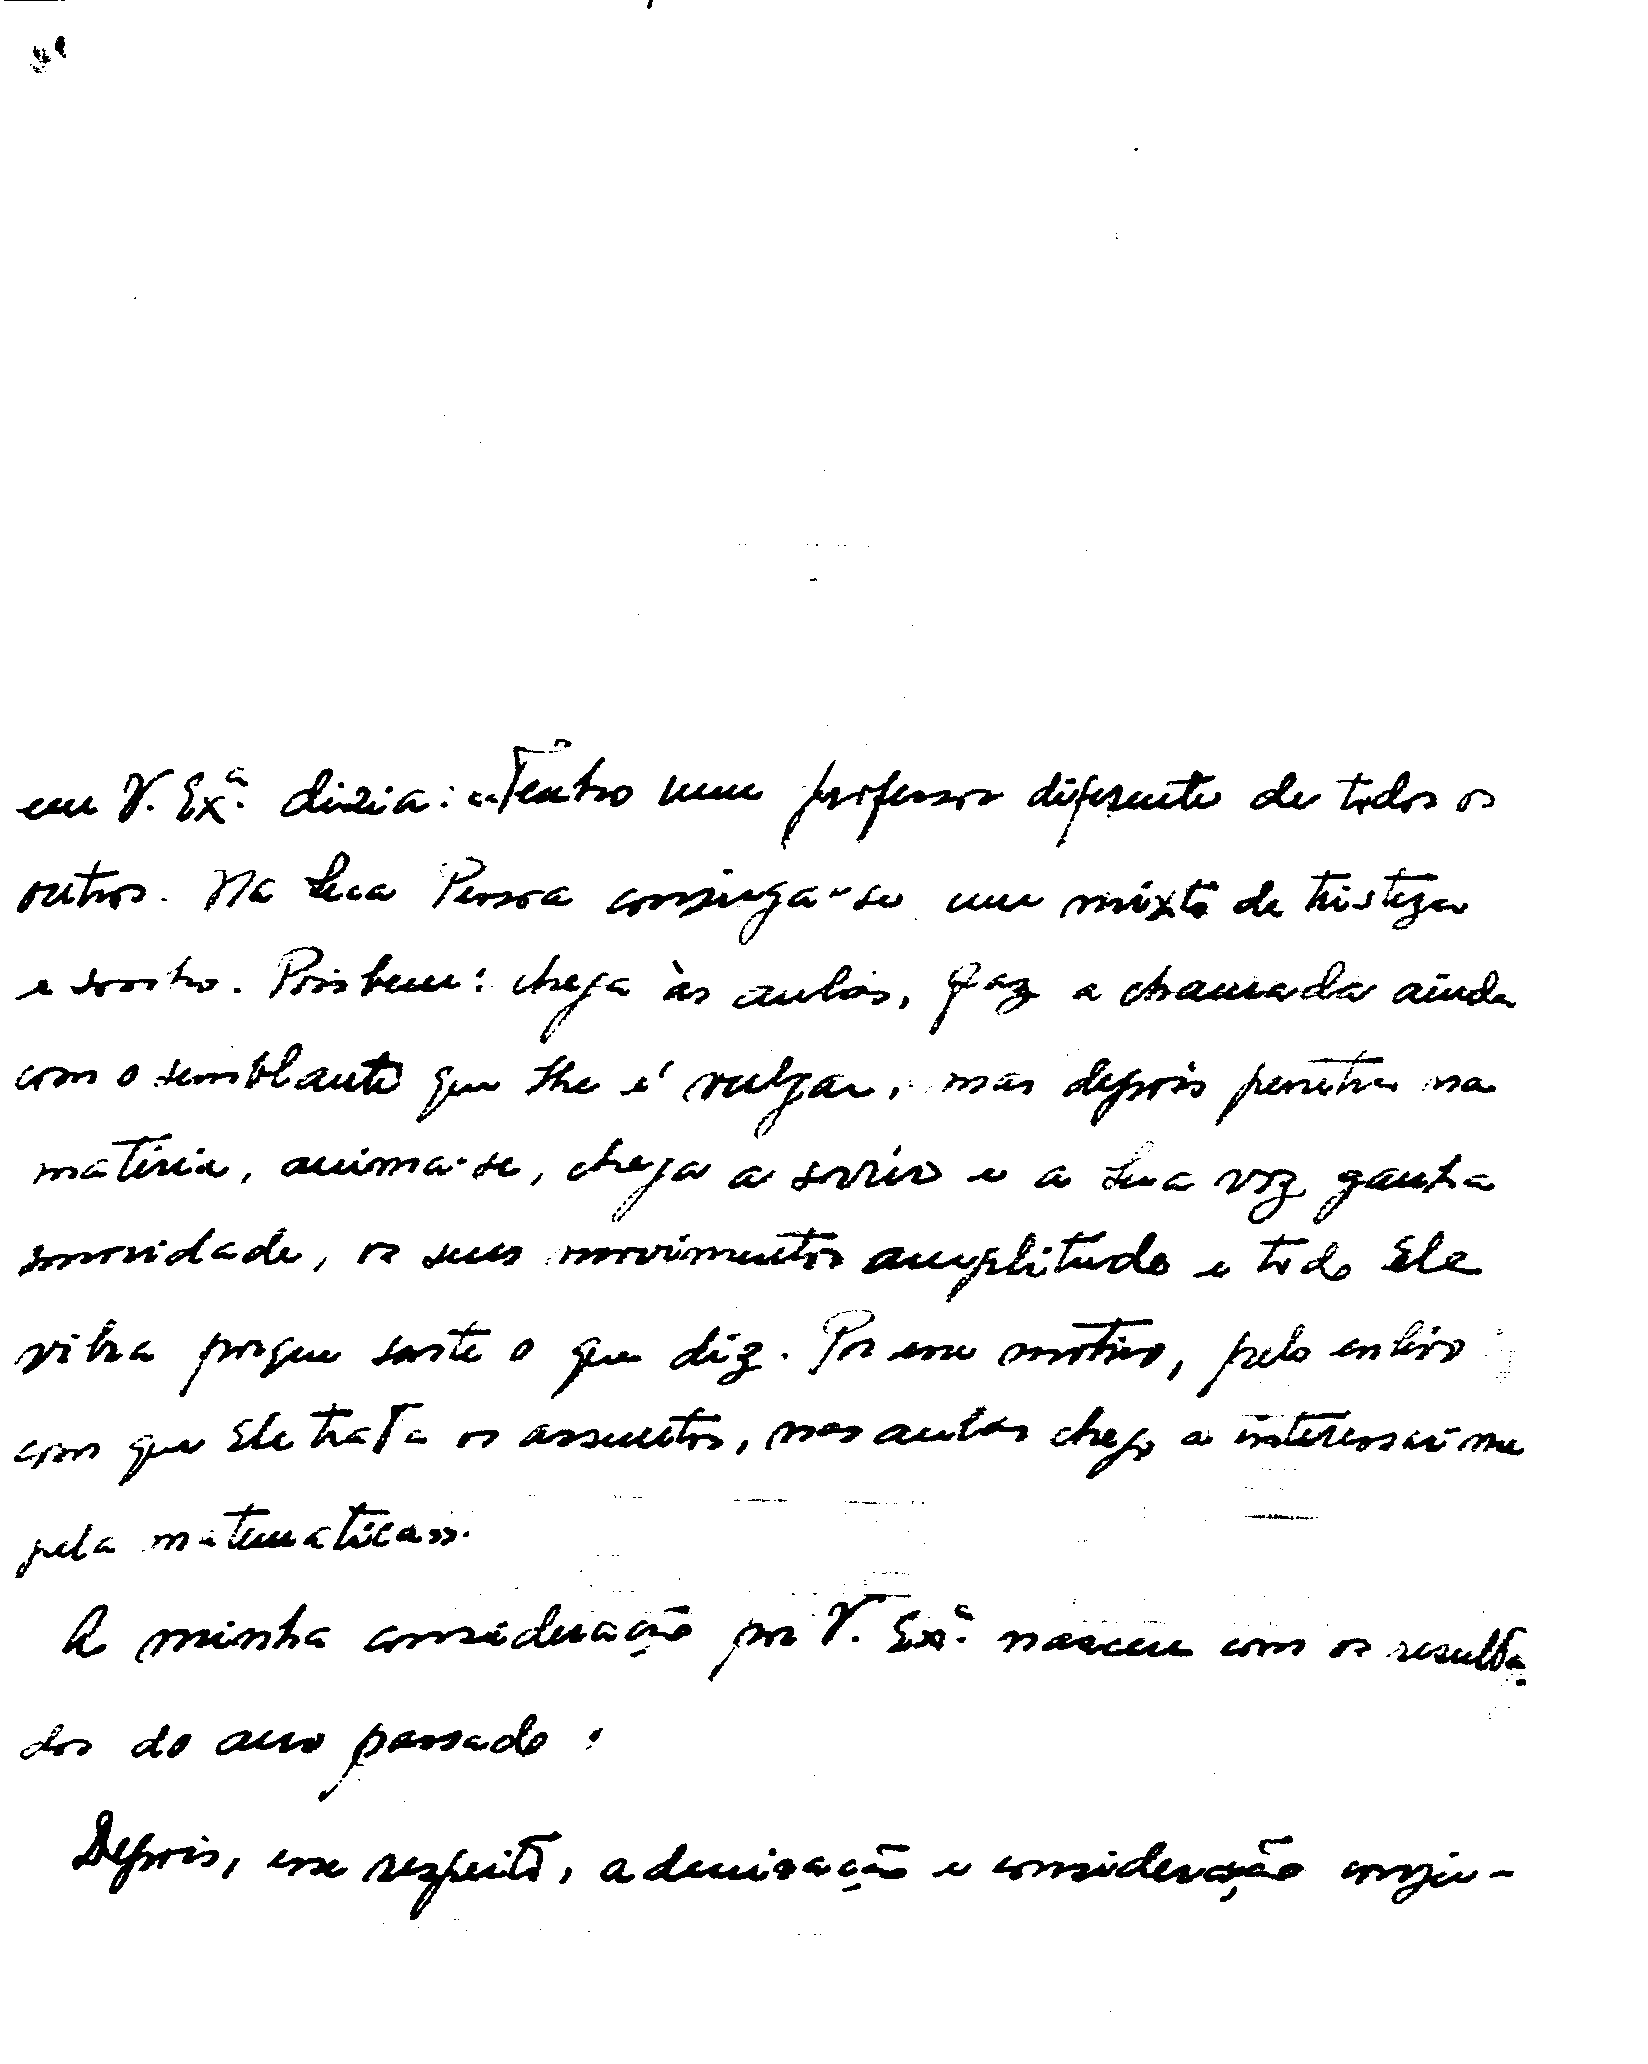 em V. Exª. dizia: «Tenho um professor diferente de todos os
outros. Na Sua Pessoa conjuga-se um mixto de tristeza
e sonho. Pois bem: chega às aulas, faz a chamada ainda
com o semblante que lhe é vulgar, mas depois penetra na
matéria, anima-se, chega a sorrir e a Sua voz ganha
sonoridade, os seus movimentos amplitude e todo Ele
vibra porque sente o que diz. Por esse motivo, pelo enlevo
com que Ele trata os assuntos, nas aulas chego a interessar-me
pela matematica».
A minha consideração por V. Exª. nasceu com os resulta-
dos do ano passado.
Depois, esse respeito, admiração e consideração conju-